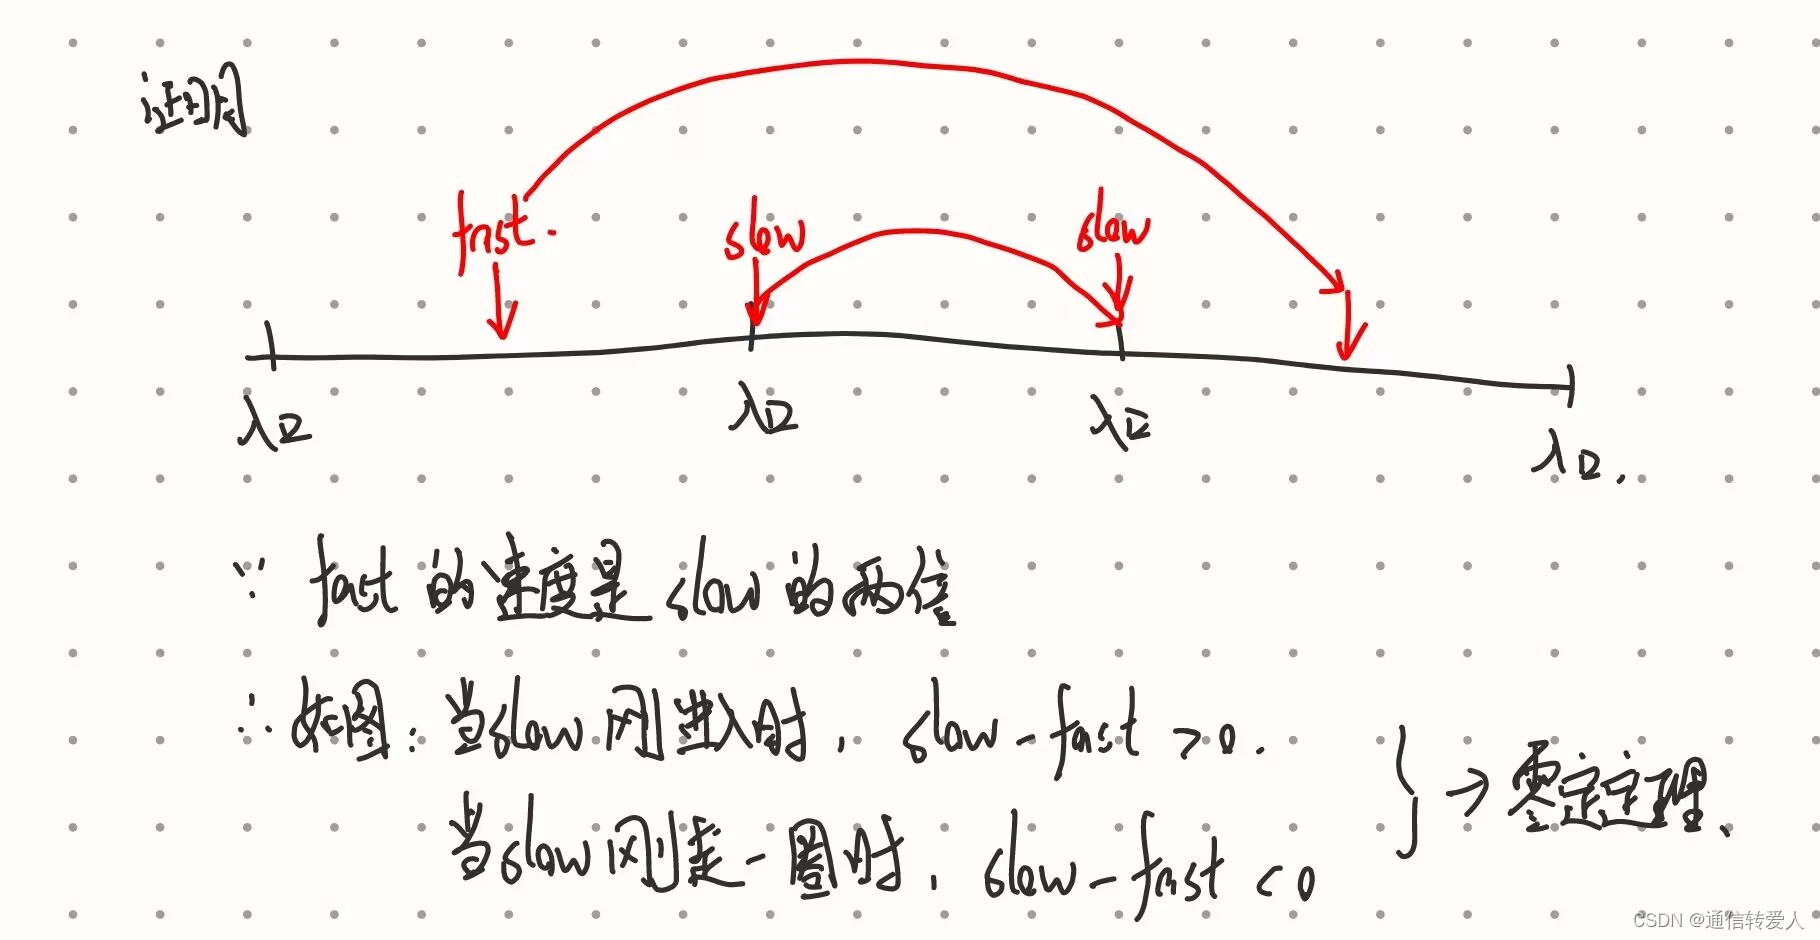 证明
fast.
slow
slow
入口
入口
入口
入口.
∵ fast 的速度是 slow 的两倍
∴ 如图: 当slow 刚进入时, slow - fast > 0.
当slow 刚走一圈时, slow - fast < 0
} → 零定定理、
CSDN @通信转爱人